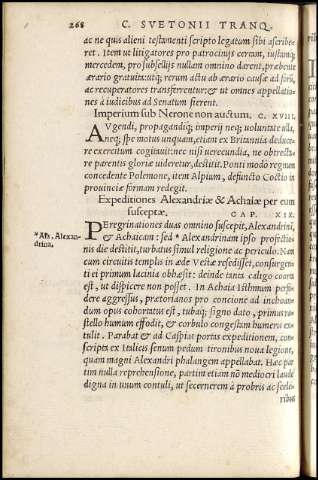 268 C. SVETONII TRANQ.
ac ne quis alieni testamenti scripto legatum sibi ascribe
ret. Item ut litigatores pro patrocinijs certam, iustamq;
mercedem, pro subsellijs nullam omnino darent, præbente
ærario gratuita: utq; rerum actu ab ærario causæ ad forū,
ac recuperatores transferrentur: & ut omnes appellatio-
nes à iudicibus ad Senatum fierent.
Imperium sub Nerone non auctum. C. XVIII.
AVgendi, propagandiq; imperij neq; uoluntate ulla,
neq; spe motus unquam, etiam ex Britannia deduce-
re exercitum cogitauit: nec nisi uerecundia, ne obtrecta
re parentis gloriæ uideretur, destitit. Ponti modò regnum
concedente Polemone, item Alpium, defuncto Coctio in
prouinciæ formam redegit.
Expeditiones Alexandriæ & Achaiæ per eum
susceptæ. CAP. XIX.
PEregrinationes duas omnino suscepit, Alexandrinā,
& Achaicam: sed * Alexandrinam ipso profectio-
*Al. Alexan-
drina.
nis die destitit, turbatus simul religione ac periculo. Nam
cum circuitis templis in æde Vestæ resedisset, consurgen-
ti ei primum lacinia obhæsit: deinde tanta caligo coorta
est, ut dispicere non posset. In Achaia Isthmum perfo-
dere aggressus, prætorianos pro concione ad inchoan-
dum opus cohortatus est, tubaq; signo dato, primus ra-
stello humum effodit, & corbulæ congestam humeris ex-
tulit. Parabat & ad Caspias portas expeditionem, con-
scripta ex Italicis senum pedum tironibus noua legione,
quam magni Alexandri phalangem appellabat. Hæc par
tim nulla reprehensione, partim etiam nō mediocri laude
digna in unum contuli, ut secernerem à probris ac scele-
ribus